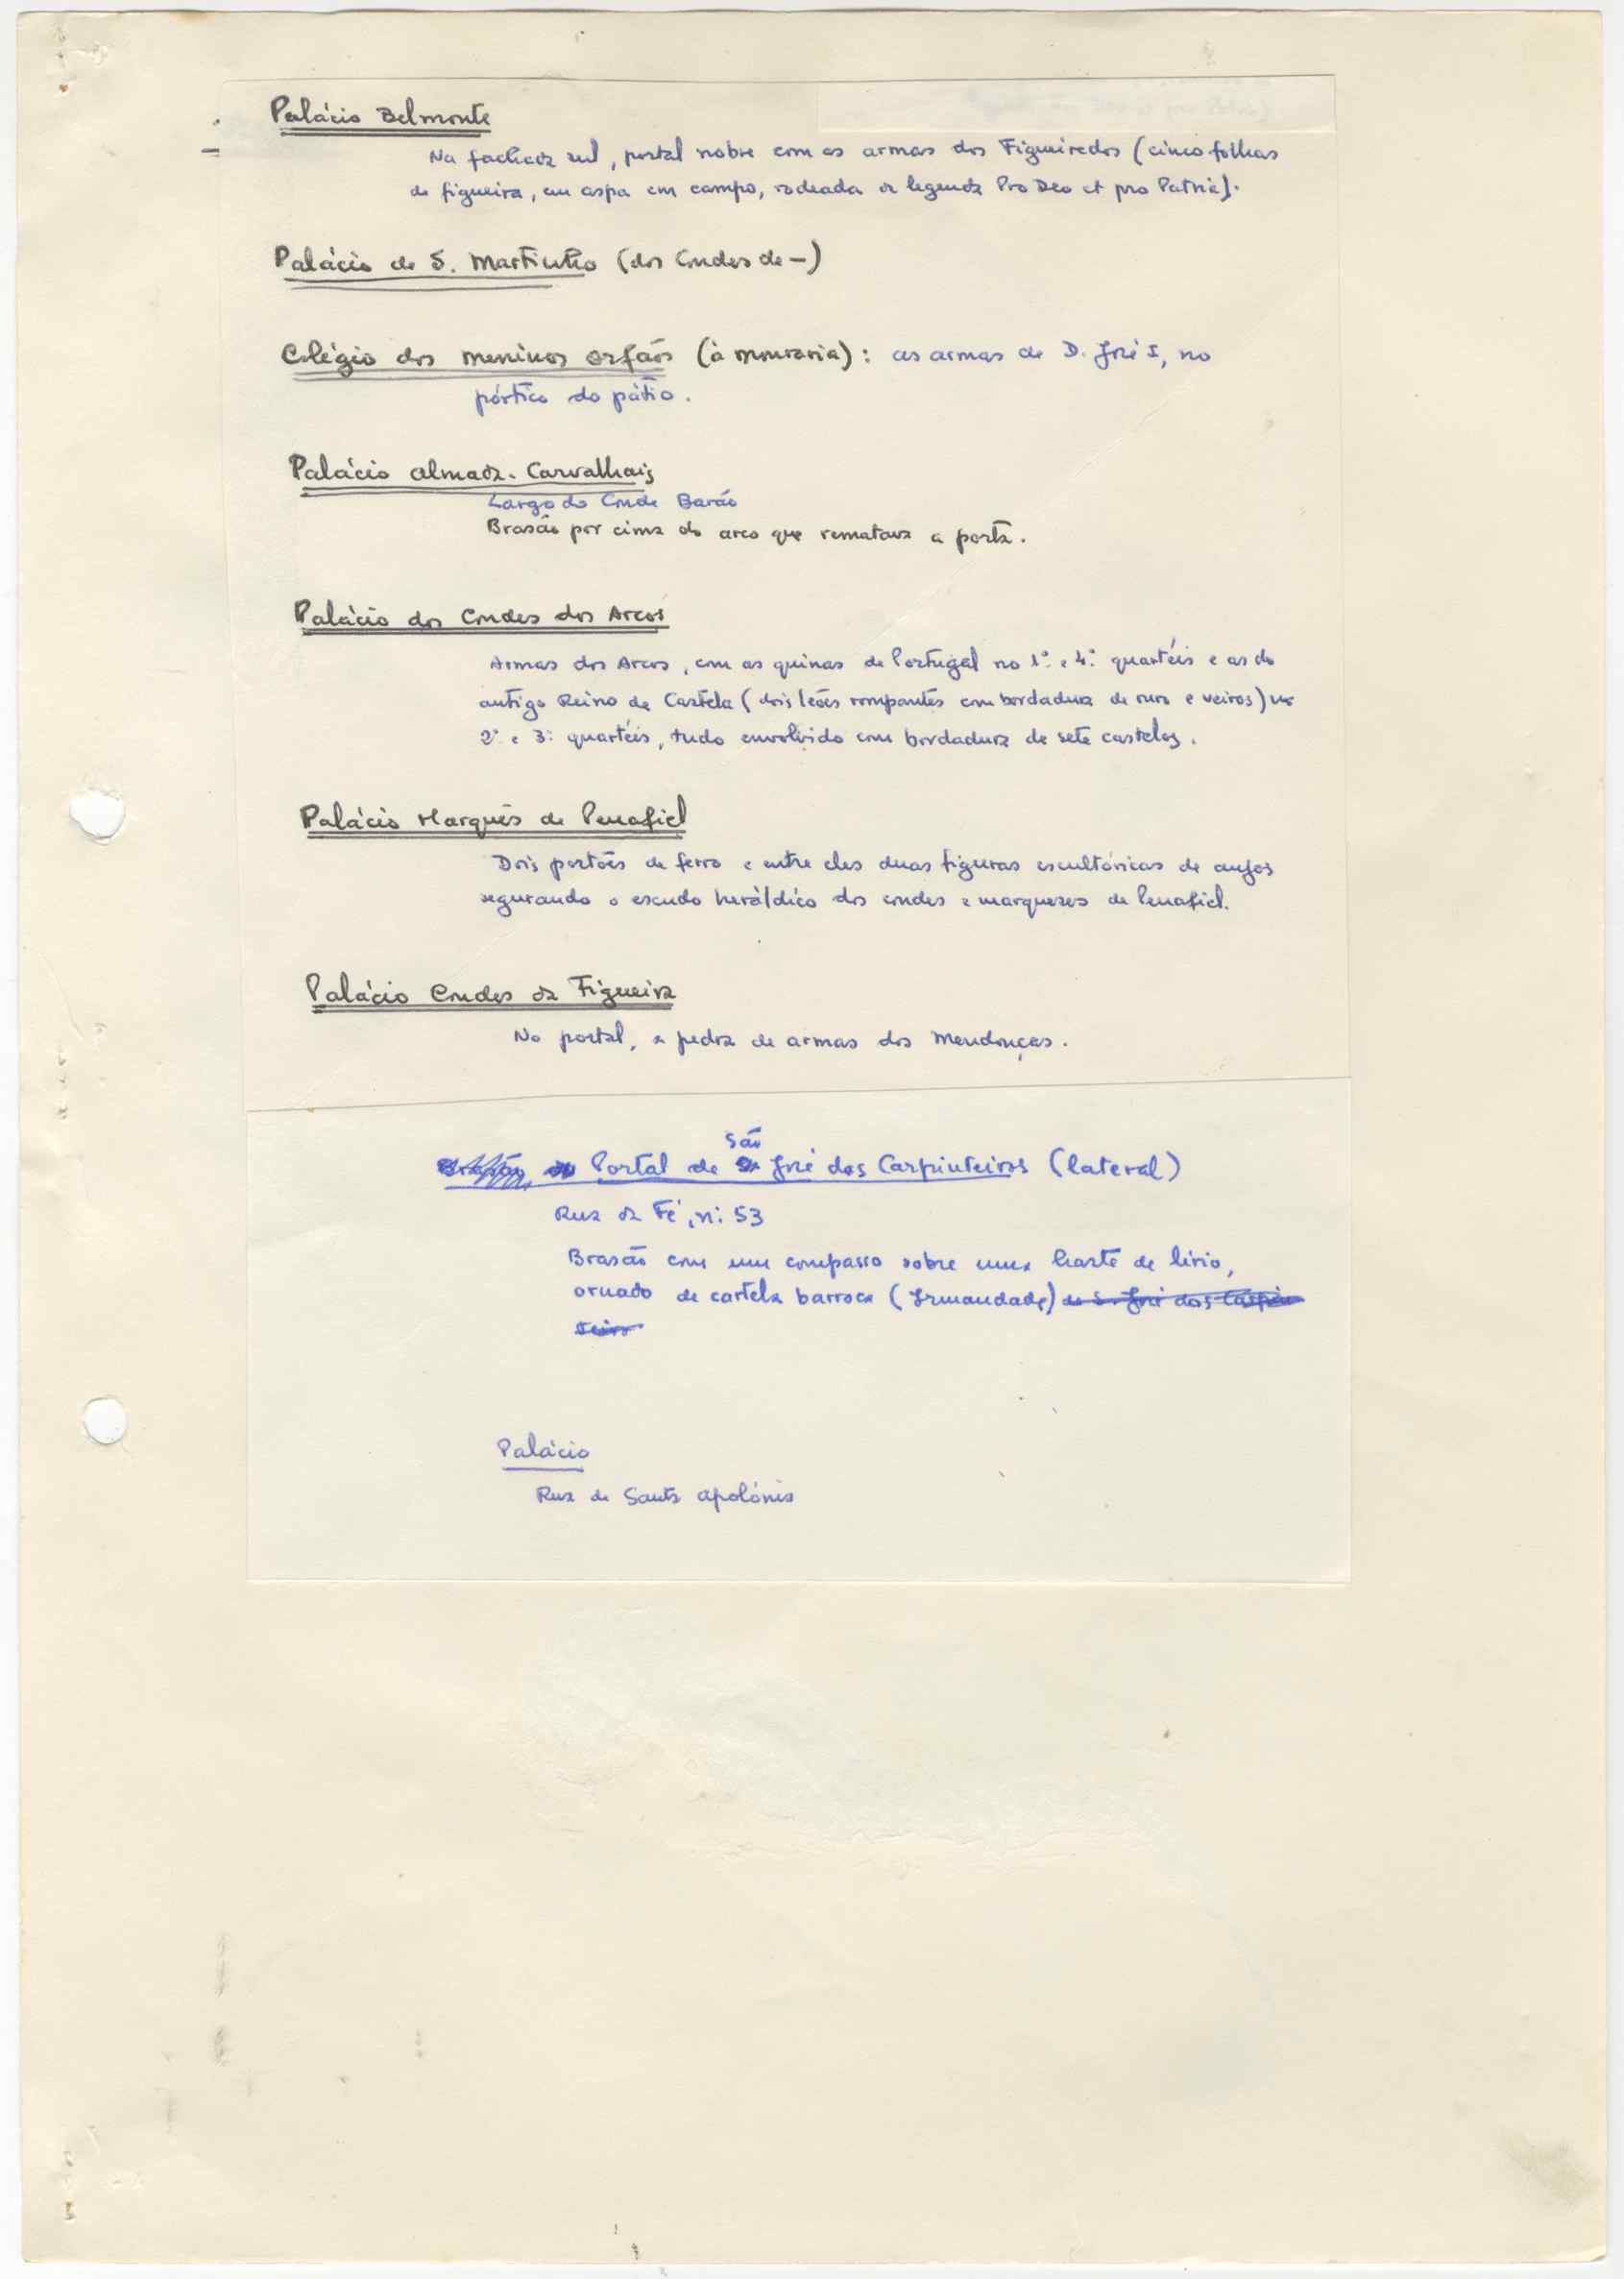 Palácio Belmonte
Na fachada sul, portal nobre com as armas dos Figueiredos (cinco folhas
de figueira, em aspa em campo, rodeada da legenda Pro Deo et pro Patria).
Palácio de S. Martinho (dos Condes de -)
Colégio dos meninos orfãos (à mouraria): as armas de D. José I, no
pórtico do pátio.
Palácio Almada-Carvalhais
Largo do Conde Barão
Brasão por cima do arco que rematava a porta.
Palácio dos Condes dos Arcos
Armas dos Arcos, com as quinas de Portugal no 1º e 4º quartéis e as do
antigo Reino de Castela (dois leões rompantes com bordadura de ouro e veiros) no
2º e 3º quartéis, tudo envolvido com bordadura de sete castelos.
Palácio Marquês de Penafiel
Dois portões de ferro e entre eles duas figuras escultóricas de anjos
segurando o escudo heráldico dos condes e marqueses de Penafiel.
Palácio Condes da Figueira
No portal, a pedra de armas dos Mendonças.
Portal de São José dos Carpinteiros (lateral)
Rua da Fé, nº 53
Brasão com um compasso sobre uma haste de lírio,
ornado de cartela barroca (Irmandade) de S. José dos Carpin
teiros
Palácio
Rua de Santa Apolónia